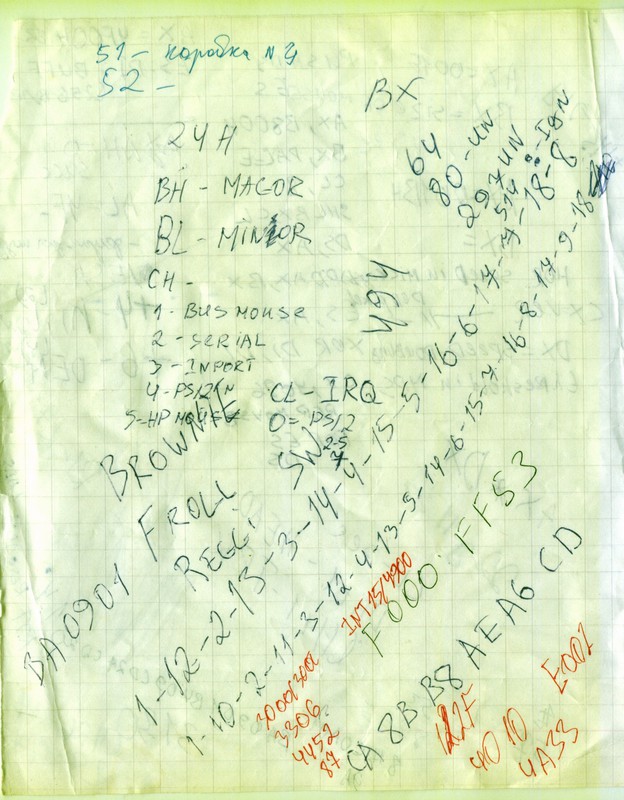 51 - коробка №4
52 -
BX
24H
BH - MAGOR
BL - MINOR
CH -
1 - BUSMOUSE
2 - SERIAL
3 - INPORT
4 - PS/2
5 - HP MOUSE
CL - IRQ
0 = PS/2
SW 2-5
7
64
80 - UN
297 UN
494
BROWNIE
FROLL
REGGI
BA0901
1-12-2-13-3-14-4-15-5-16-6-17-7-18-8
1-10-2-11-3-12-4-13-5-14-6-15-7-16-8-17-9-18
INT15/4900
F000:FF53
3306
4452
87
CA 8B B8 AE A6 CD
122F
4010
4A33
E001